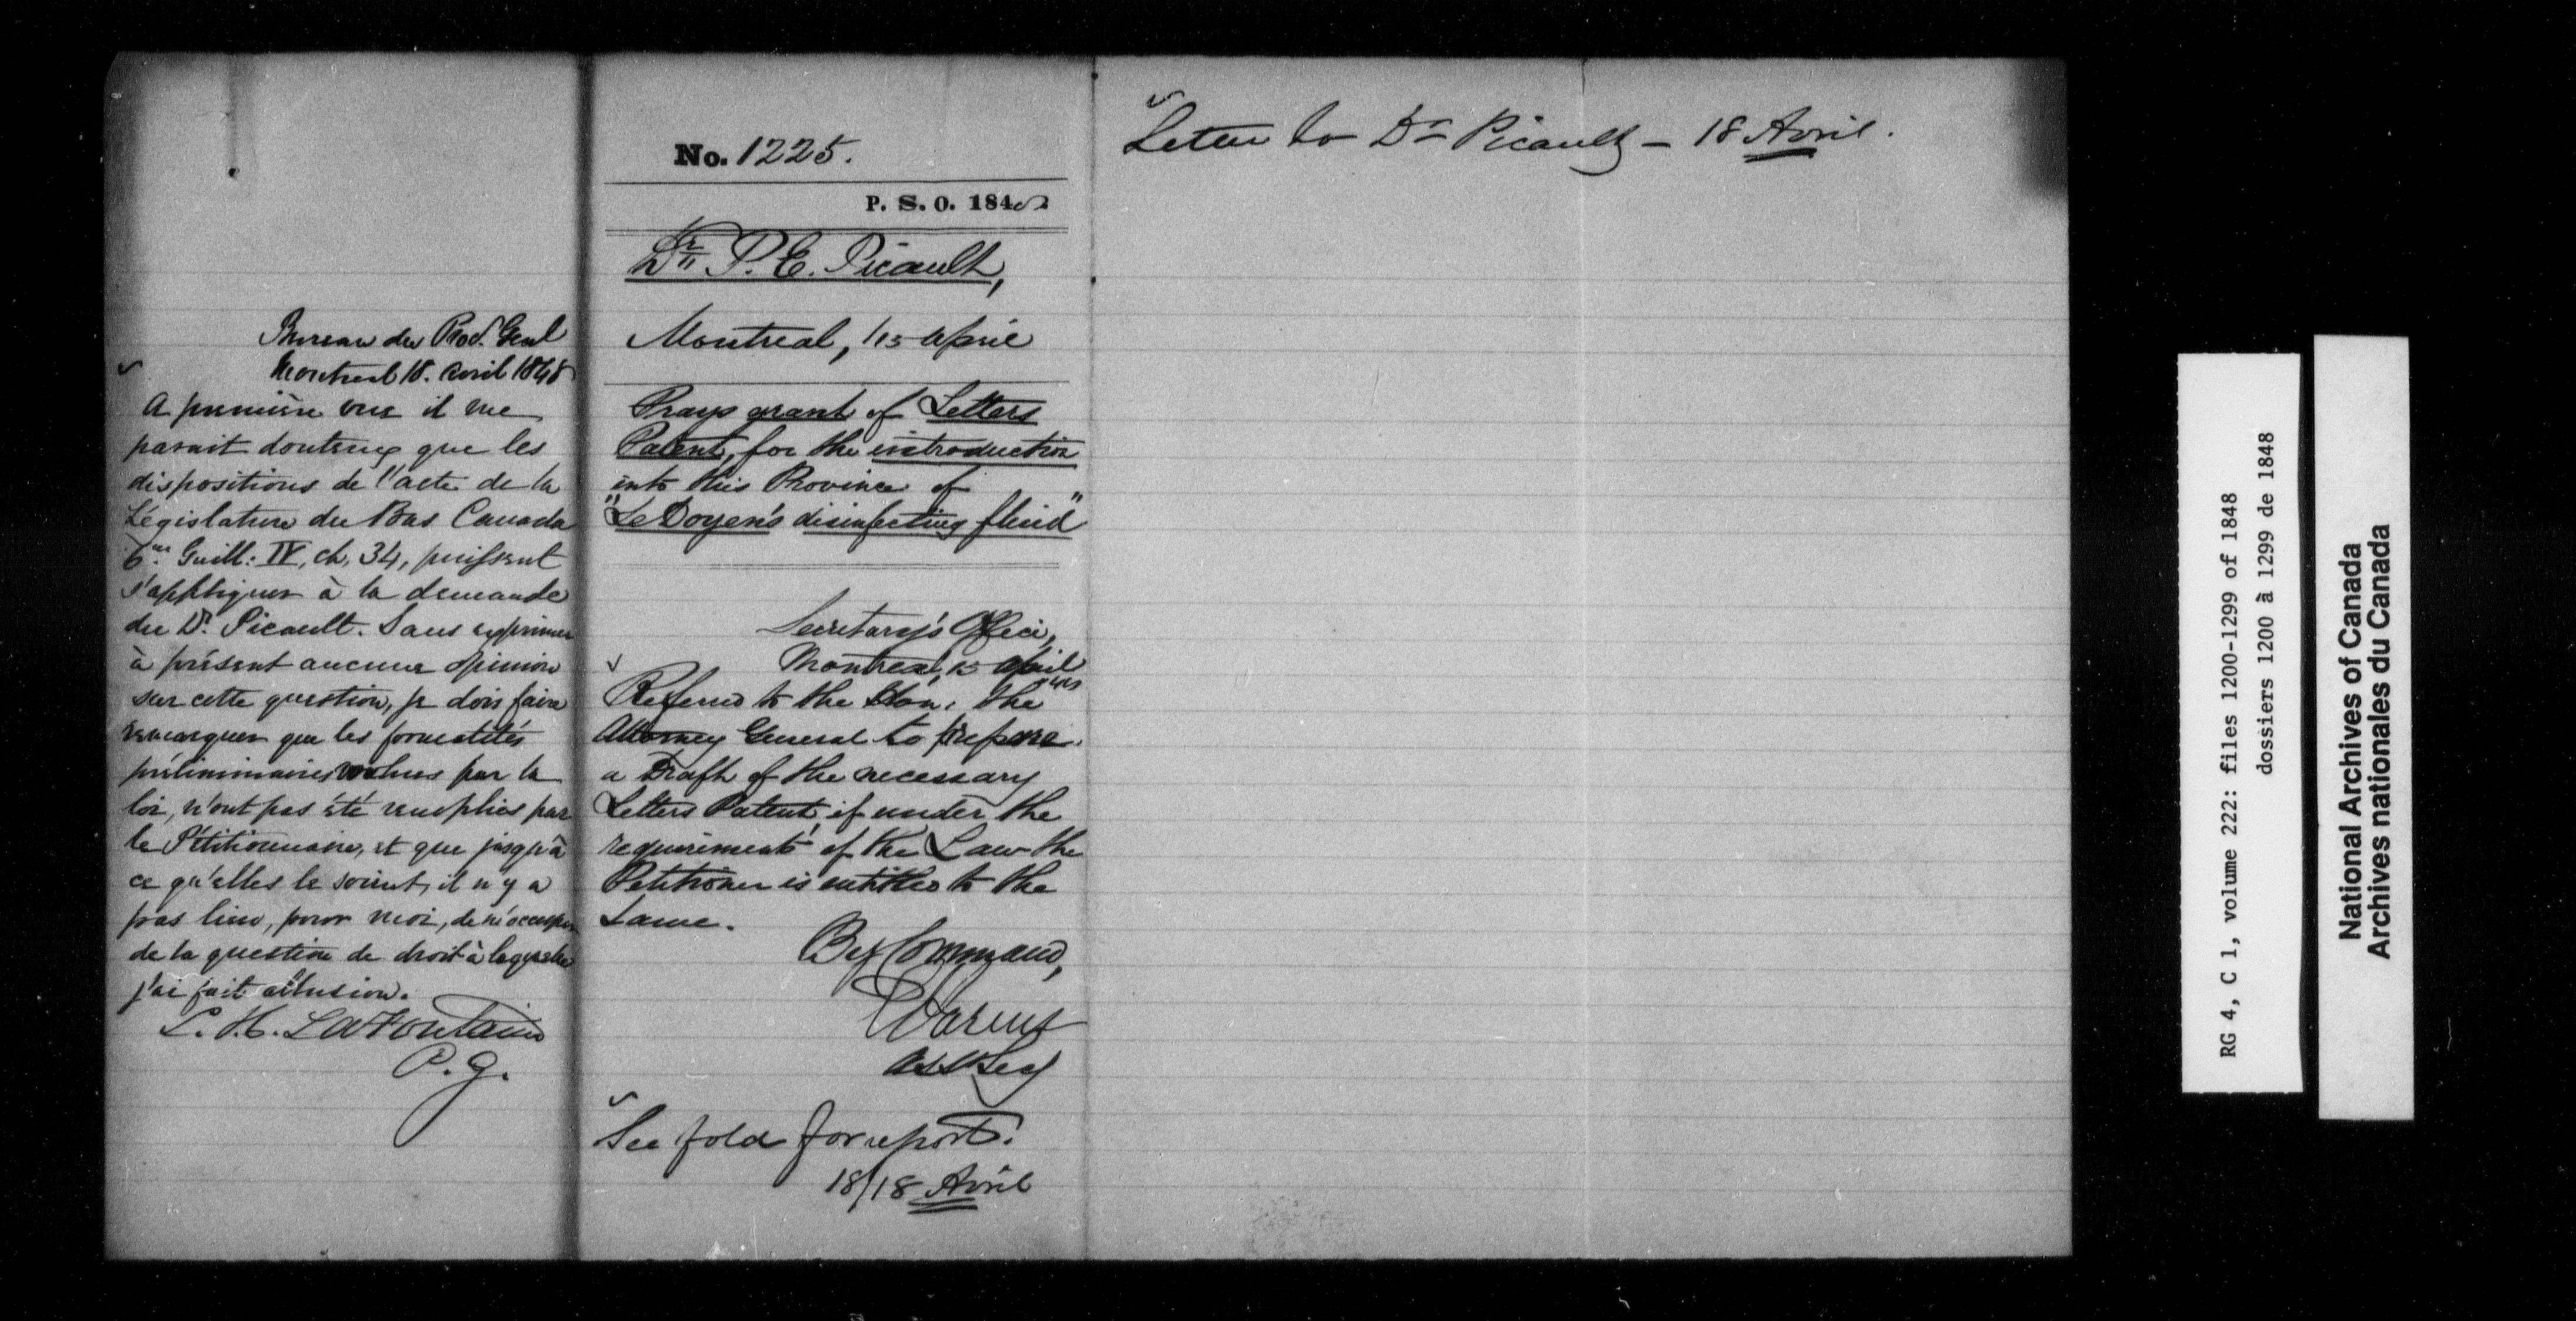 Bureau du Proc. Genl
Montreal 18. avril 1848
A première vue il me
parait douteux que les
dispositions de l'acte de la
Législature du Bas Canada
6me Guill: IV, ch, 34, puissent
s'appliquer à la demande
du Dr. Picault. Sans exprimer
à présent aucune opinion
sur cette question, je dois faire
remarquer que les formalités
préliminaires voulues par la
loi, n'ont pas été remplies par
le Pétitionnaire, et que jusqu'à
ce qu'elles le soient, il n'y a
pas lieu, pour moi, de m'occuper
de la question de droit à laquelle
j'ai fait allusion.
L. H. LaFontaine
P. G.
No. 1225.
P. S. O. 1848
Dr P. E. Picault,
Montreal, 15 April
Prays grant of Letters
Patent, for the introduction
into this Province of
"Le Doyen's disinfecting fluid"
Secretary's Office,
Montreal, 15 April
1848
Referred to the Hon. the
Attorney General to prepare
a Draft of the necessary
Letters Patent, if under the
requirements of the Law the
Petitioner is entitled to the
same.
By Command,
E Parent
Asst Secy
See fold for report.
18/18 Avril
Letter to Dr Picault – 18 Avril.
RG 4, C 1, volume 222: files 1200-1299 of 1848
dossiers 1200 à 1299 de 1848
National Archives of Canada
Archives nationales du Canada